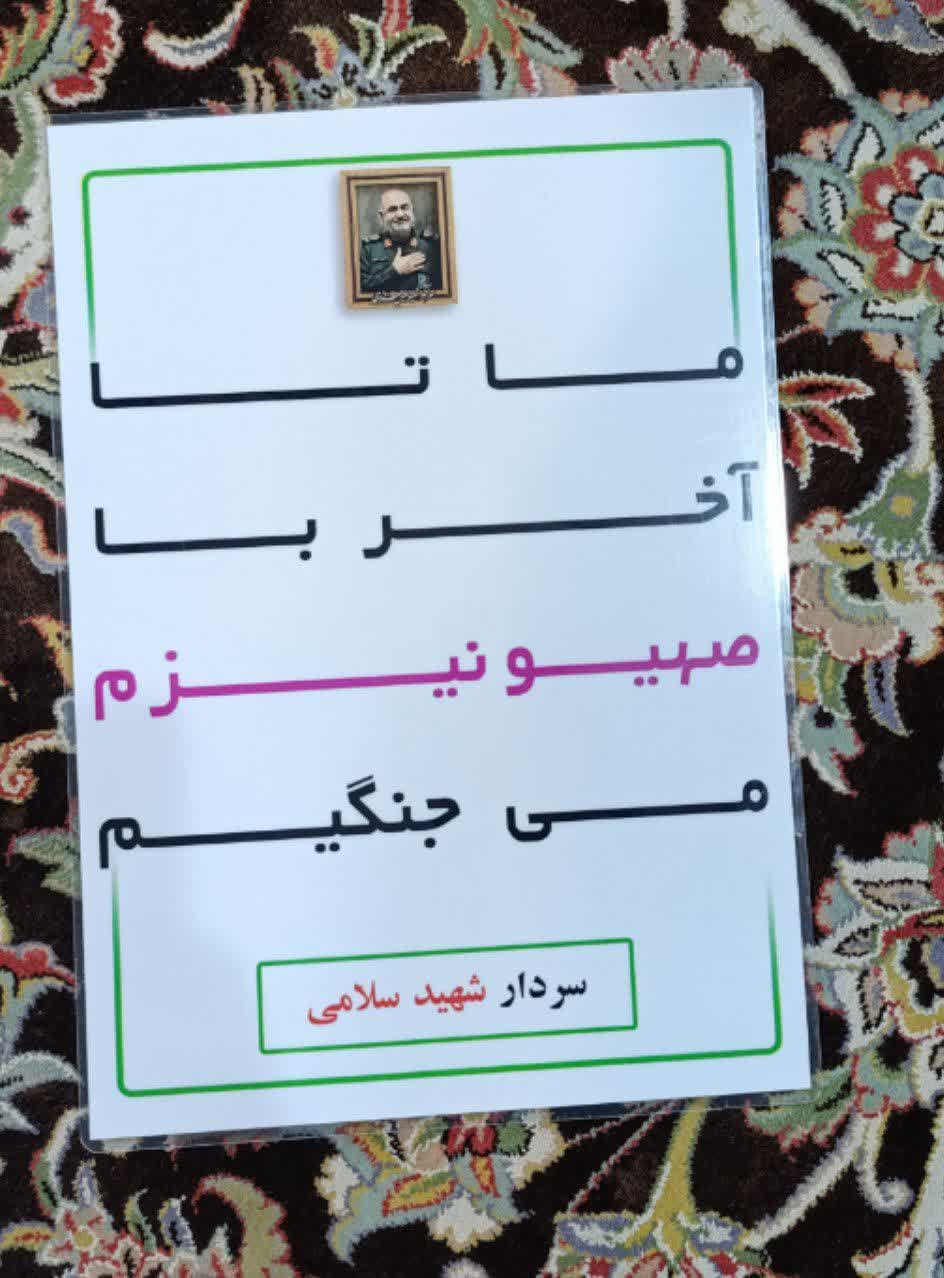 ما تا
آخر با
صهیونیزم
می جنگیم
سردار شهید سلامی